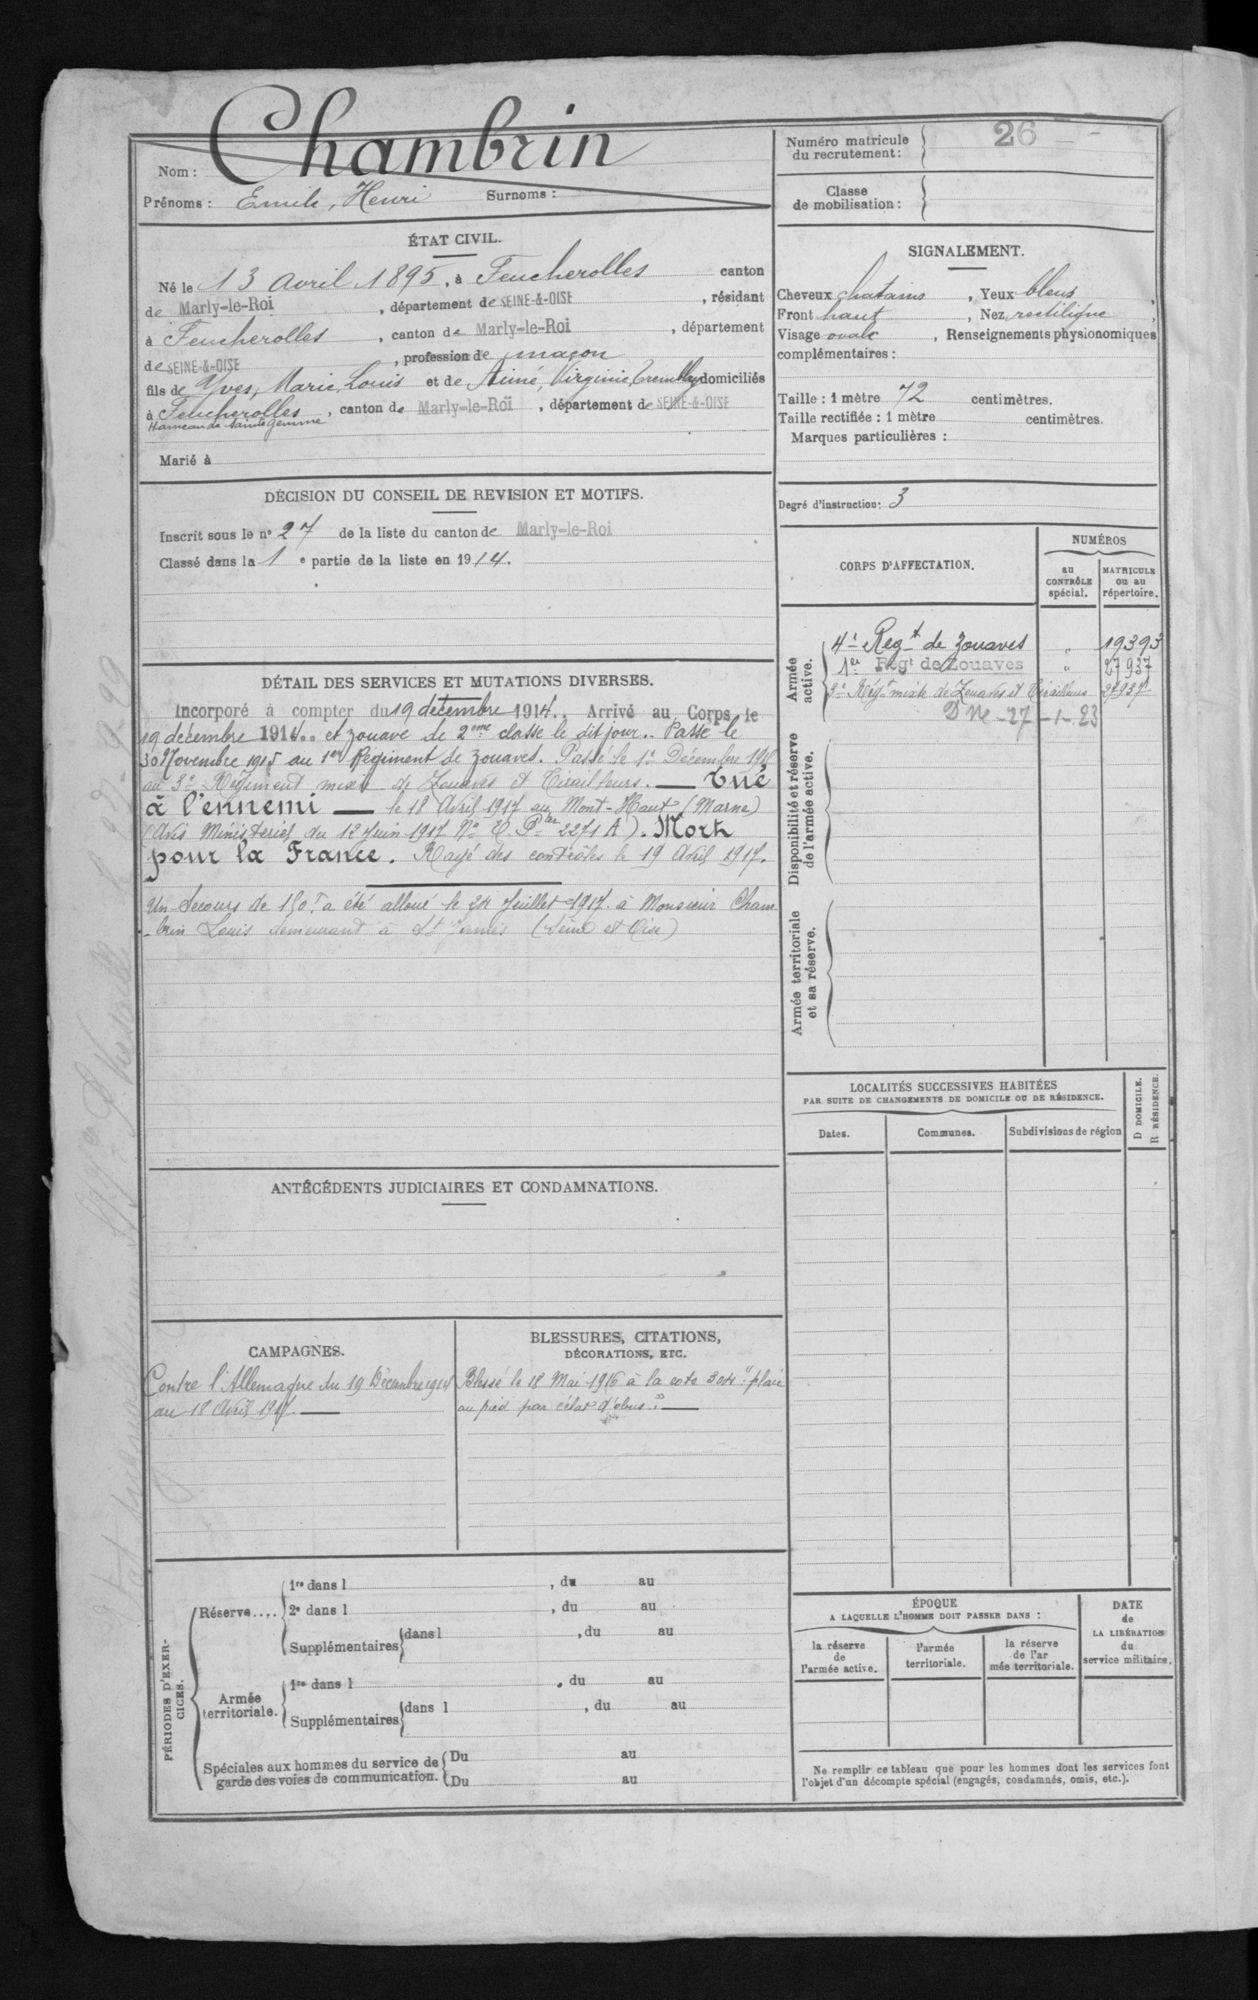 Nom : Chambrin
Prénoms : Emile, Henri Surnoms :
Numéro matricule du recrutement : 26
Classe de mobilisation :
ÉTAT CIVIL.
Né le 13 avril 1895, à Feucherolles canton
de Marly-le-Roi, département de SEINE-&-OISE, résidant
à Feucherolles, canton de Marly-le-Roi, département
de SEINE-&-OISE, profession de maçon
fils de Yves, Marie, Louis et de Aimé, Virginie Tremblay domiciliés
à Feucherolles, canton de Marly-le-Roi, département de SEINE-&-OISE
Hameau de Sainte Gemme
Marié à
SIGNALEMENT.
Cheveux chatains, Yeux bleus,
Front haut, Nez rectiligne,
Visage ovale, Renseignements physionomiques
complémentaires :
Taille : 1 mètre 72 centimètres.
Taille rectifiée : 1 mètre centimètres.
Marques particulières :
Degré d'instruction : 3
DÉCISION DU CONSEIL DE REVISION ET MOTIFS.
Inscrit sous le n° 27 de la liste du canton de Marly-le-Roi
Classé dans la 1e partie de la liste en 1914.
CORPS D'AFFECTATION.
NUMÉROS
au CONTRÔLE spécial.
MATRICULE ou au répertoire.
Armée active.
4e Regt de Zouaves " 19393
1er Regt de Zouaves " 27937
3e Régt mixte de Zouaves et Tirailleurs 27937
D Ne - 27 - 1 - 23
Disponibilité et réserve de l'armée active.
Armée territoriale et sa réserve.
DÉTAIL DES SERVICES ET MUTATIONS DIVERSES.
Incorporé à compter du 19 décembre 1914.. Arrivé au Corps le
19 décembre 1914.. et zouave de 2eme classe le dit jour.. Passé le
30 Novembre 1915 au 1er Régiment de zouaves. Passé le 1er Décembre 191
au 3e Régiment mixte de Zouaves et Tirailleurs. — Tué
à l'ennemi — le 18 Avril 1917 au Mont-Haut (Marne)
(Avis Ministeriel du 12 Juin 1917 No 2271 A). Mort
pour la France. Rayé des contrôles le 19 Avril 1917.
Un Secours de 150f a été alloué le 24 Juillet 1917. à Monsieur Cham
-brin Louis demeurant à St James (Seine et Oise)
LOCALITÉS SUCCESSIVES HABITÉES
PAR SUITE DE CHANGEMENTS DE DOMICILE OU DE RÉSIDENCE.
Dates. Communes. Subdivisions de région
D DOMICILE.
R RÉSIDENCE.
ANTÉCÉDENTS JUDICIAIRES ET CONDAMNATIONS.
CAMPAGNES.
Contre l'Allemagne du 19 Décembre 1914
au 18 Avril 1917. —
BLESSURES, CITATIONS,
DÉCORATIONS, ETC.
Blessé le 18 Mai 1916 à la cote 304 "plaie
au pied par éclat d'obus." —
PÉRIODES D'EXERCICES.
Réserve....
1re dans l , du au
2e dans l , du au
Supplémentaires dans l , du au
Armée territoriale.
1re dans l , du au
Supplémentaires dans l , du au
Spéciales aux hommes du service de
garde des voies de communication.
Du au
Du au
ÉPOQUE
A LAQUELLE L'HOMME DOIT PASSER DANS :
la réserve de l'armée active.
l'armée territoriale.
la réserve de l'ar mée territoriale.
DATE de LA LIBÉRATION du service militaire.
Ne remplir ce tableau que pour les hommes dont les services font
l'objet d'un décompte spécial (engagés, condamnés, omis, etc.).